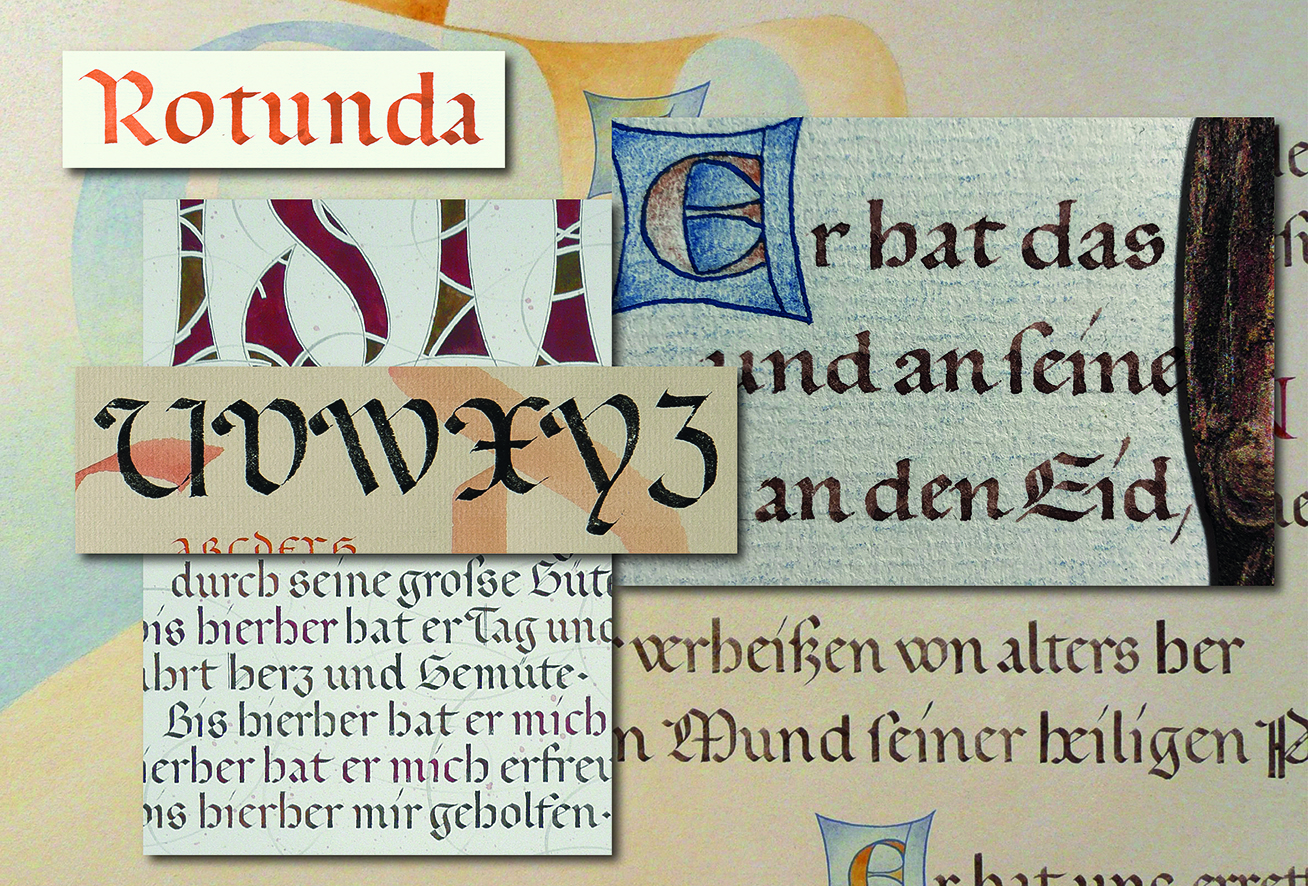 Rotunda
Er hat das
und an ſeine
an den Eid,
UVWXYZ
durch seine groſse Güte
bis hierher hat er Tag und
hrt herz und Gemüte·
Bis hierher hat er mich
ierher hat er mich erfreu
bis hierher mir geholfen·
verheißen von alters her
n Mund ſeiner heiligen
Er hat uns